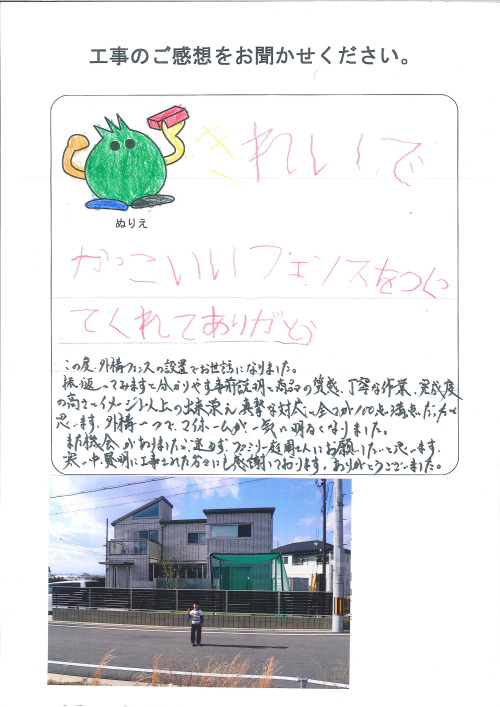 工事のご感想をお聞かせください。
きれいで
ぬりえ
かっこいいフェンスをつくっ
てくれてありがとう
この度、外構フェンスの設置でお世話になりました。
振り返ってみますと分かりやすい事前説明と商品の質感、丁寧な作業、完成度
の高さでイメージ以上の出来栄え、真摯な対応に全てが100点満点だったと
思います。外構一つで、マイホームが一気に明るくなりました。
また機会がありましたら、迷わず、ファミリー庭園さんにお願いしたいと思います。
寒い中、賢明に工事された方々にも感謝しております。ありがとうございました。